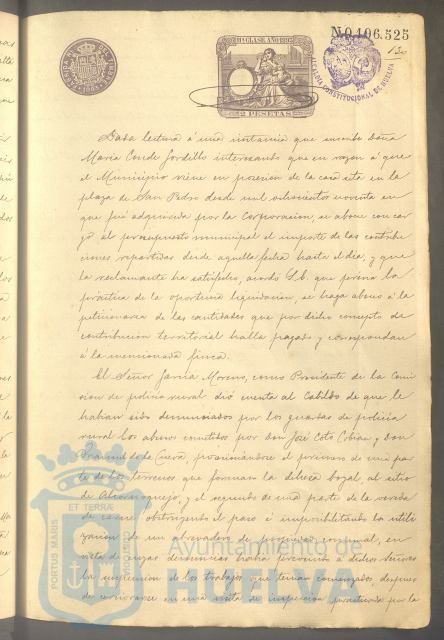 11ª CLASE AÑO 1895
Nº 0,106,525
130
ALCALDIA CONSTITUCIONAL DE HUELVA
2 PESETAS
Dada lectura á una instancia que suscribe Doña
Maria Conde Gordillo interesando que en razon á que
el Municipio viene en posesion de la casa sita en la
plaza de San Pedro desde mil ochocientos noventa en
que fué adquirida por la Corporacion, se abone con car
go al presupuesto municipal el importe de las contribu
ciones repartidas desde aquella fecha hasta el dia, y que
la reclamante ha satisfecho, acordó S.E. que previa la
práctica de la oportuna liquidacion, se haga abono á la
peticionaria de las cantidades que por dicho concepto de
contribucion territorial halla pagado y correspondan
á la mencionada finca.
El Señor Garcia Moreno, como Presidente de la Comi
sion de policia rural dió cuenta al Cabildo de que le
habian sido denunciados por los guardas de policia
rural los abusos cometidos por don José Coto Cobian y Don
Manuel de la Cueva, posesionándose el primero de una par
te de los terrenos que forman la dehesa boyal, al sitio
de y el segundo de una parte de la vereda
de carne obstruyendo el paso é imposibilitando la utili
zacion de un abrevadero de propiedad comunal, en
vista de cuyas denuncias habia prevenido á dichos señores
la suspension de los trabajos que tenian comenzados, despues
de en una visita de inspeccion practicada por la
PORTUS MARIS ET TERRÆ CUSTODIA
Ayuntamiento de
HUELVA